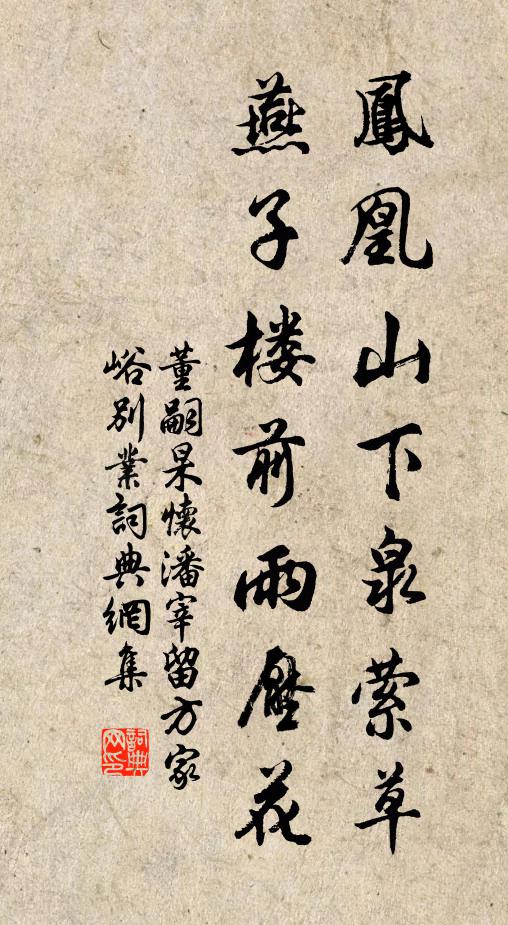 鳳凰山下泉縈草
燕子楼前雨壓花
董嗣杲懷潘宰留方家
峪別業詞典網集
詞典网印